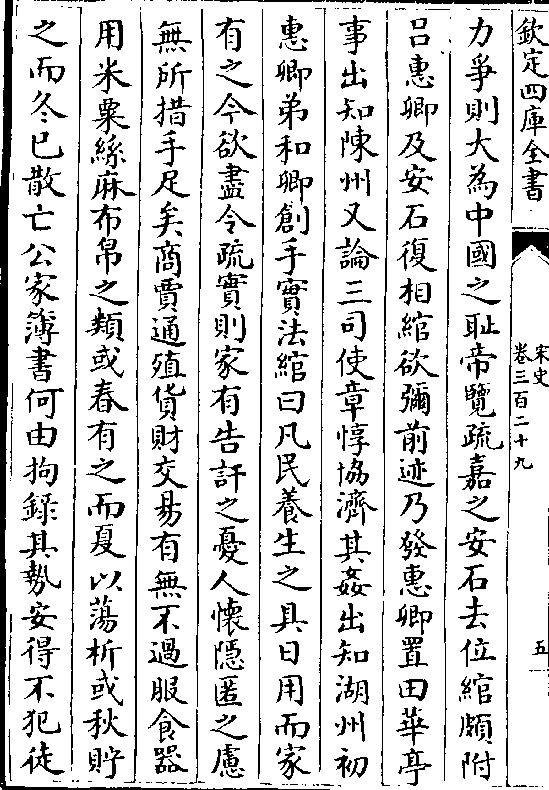 欽定四庫全書
宋史
卷三百二十九
五
力爭則大為中國之耻帝覽疏嘉之安石去位綰頗附
吕惠卿及安石復相綰欲彌前迹乃發惠卿置田華亭
事出知陳州又論三司使章惇協濟其姦出知湖州初
惠卿弟和卿創手實法綰曰凡民養生之具日用而家
有之今欲盡令疏實則家有告訐之憂人懷隱匿之慮
無所措手足矣商賈通殖貨財交易有無不過服食器
用米粟絲麻布帛之類或春有之而夏以蕩析或秋貯
之而冬已散亡公家簿書何由拘録其勢安得不犯徒